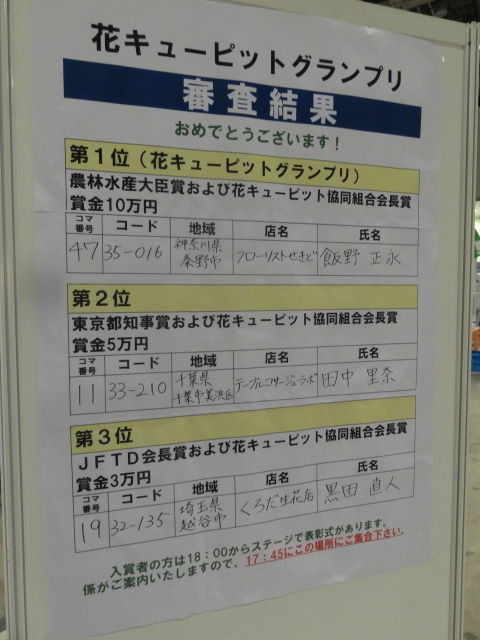 花キューピットグランプリ
審査結果
おめでとうございます！
第１位（花キューピットグランプリ）
農林水産大臣賞および花キューピット協同組合会長賞
賞金10万円
コマ番号 コード 地域 店名 氏名
47 35-016 神奈川県秦野市 フローリストせきど 飯野 正永
第２位
東京都知事賞および花キューピット協同組合会長賞
賞金5万円
コマ番号 コード 地域 店名 氏名
11 33-210 千葉県千葉市美浜区 テーブルコサージュ・ラボ 田中 里奈
第３位
ＪＦＴＤ会長賞および花キューピット協同組合会長賞
賞金3万円
コマ番号 コード 地域 店名 氏名
19 32-135 埼玉県越谷市 くろだ生花店 黒田 直人
入賞者の方は18：00からステージで表彰式があります。
係がご案内いたしますので、17：45にこの場所にご集合下さい。